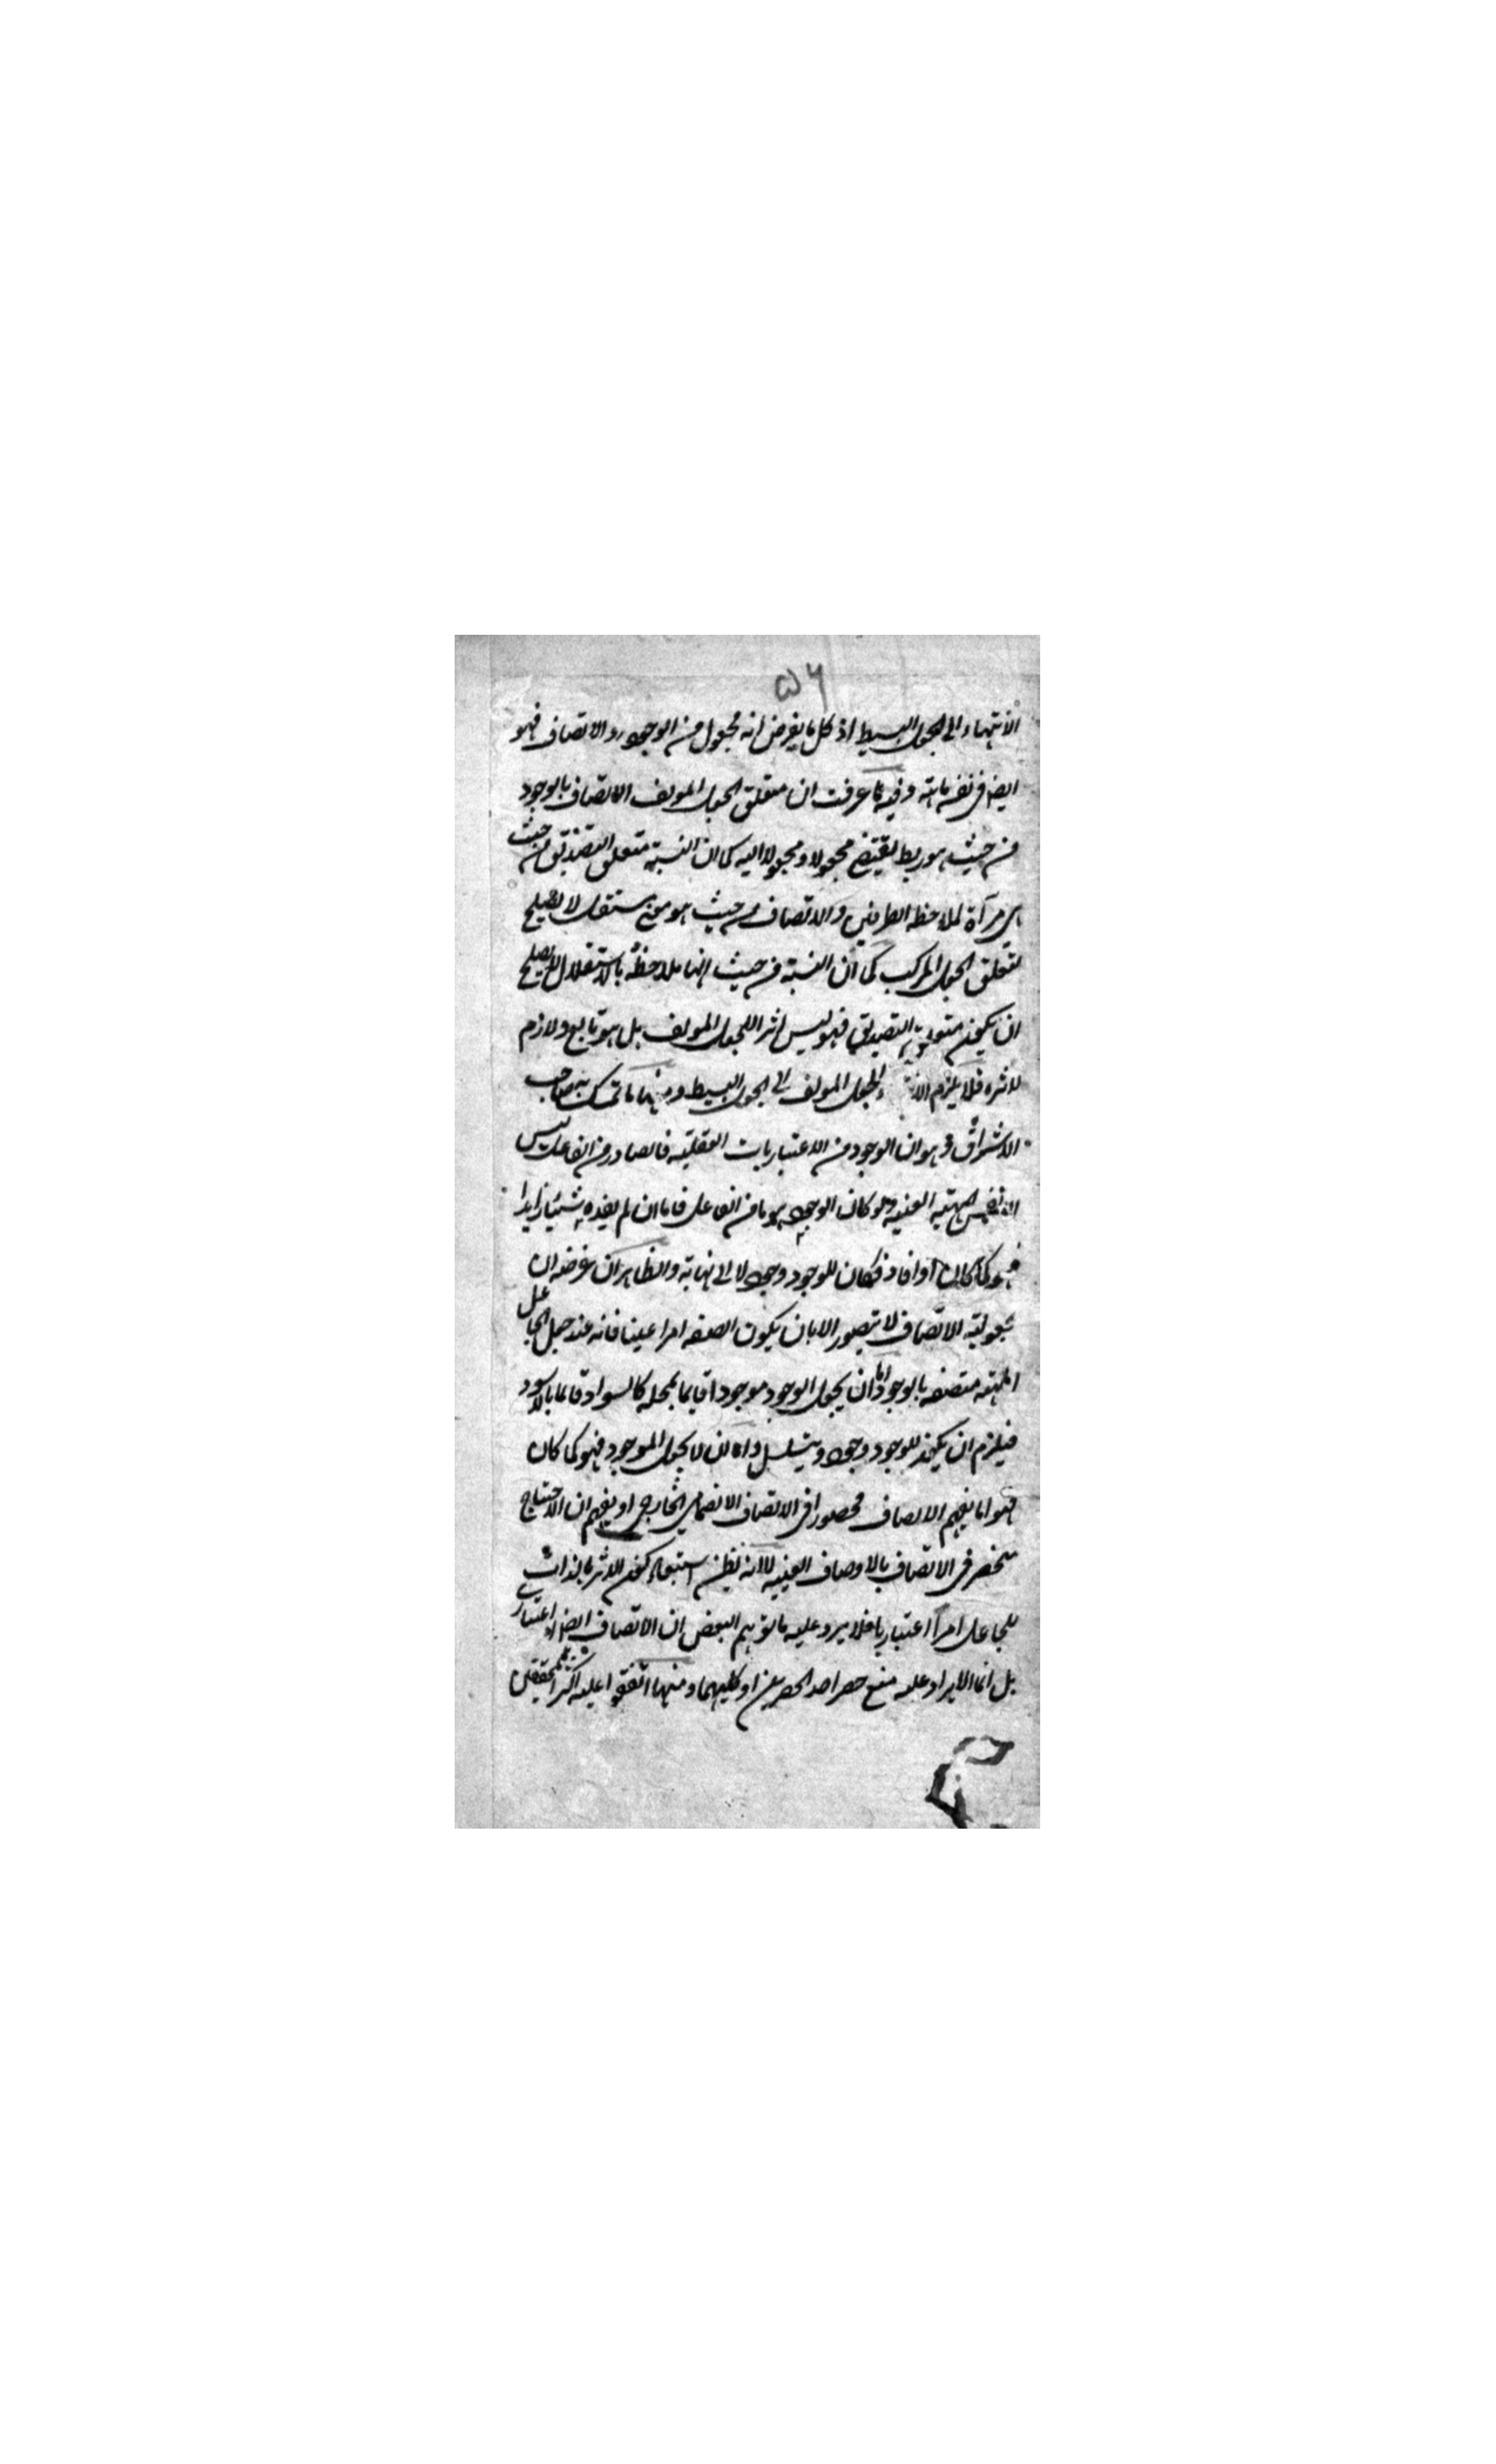 ۵۶
الانتهاء الى الجعل البسيط اذ كل ما يفرض انه مجعول من الوجود والاتصاف فهو
ايض فى نفسه ماهية وفيه ما عرفت ان متعلق الجعل المولف الاتصاف بالوجود
من حيث هو ربط يقتضى مجعولا ومجعولا اليه كما ان النسبة متعلق التصديق من حيث
هى مرآة لملاحظة الطرفين والاتصاف من حيث هو معنى مستقل لا يصلح
لتعلق الجعل المركب كما ان النسبة من حيث انها ملاحظة بالاستقلال لا يصلح
ان يكون متعلق التصديق فهو ليس اثر اللجعل المولف بل هو تابع ولازم
لاثره فلا يلزم الجعل المولف الى الجعل البسيط ومنها ما تمسك به صاحب
الاشراق وهو ان الوجود من الاعتباريات العقلية فالصادر من الفاعل ليس
الا نفس المهية العينية ولو كان الوجود هو ما من الفاعل فاما ان لم يفده شيئا زايدا
فهو كما كان او افاد فكان للوجود وجود لا الى نهاية والظاهر ان غرضه ان
مجعولية الاتصاف لا يتصور الا بان يكون الصفة امرا عينيا فانه عند جعل الجاعل
المهية متصفة بالوجود اما ان يجعل الوجود موجودا قايما بمحله كالسواد قايما بالاسود
فيلزم ان يكون للوجود وجود ويتسلسل واما ان لا يجعل الموجود فهو كما كان
فهو اما يفهم الاتصاف محصورا فى الاتصاف الانضمامى الخارجى او يفهم ان الاحتياج
منحصر فى الاتصاف بالاوصاف العينية لا انه يظن استبعاد كون الاثر بالذات
للجاعل امرا اعتباريا فلا يرد عليه ما توهم البعض ان الاتصاف ايضا اعتبارى
بل انما الايراد عليه منع حصر احد الحصرين او كليهما ومنها ما اتفقوا عليه اكثر المحققين